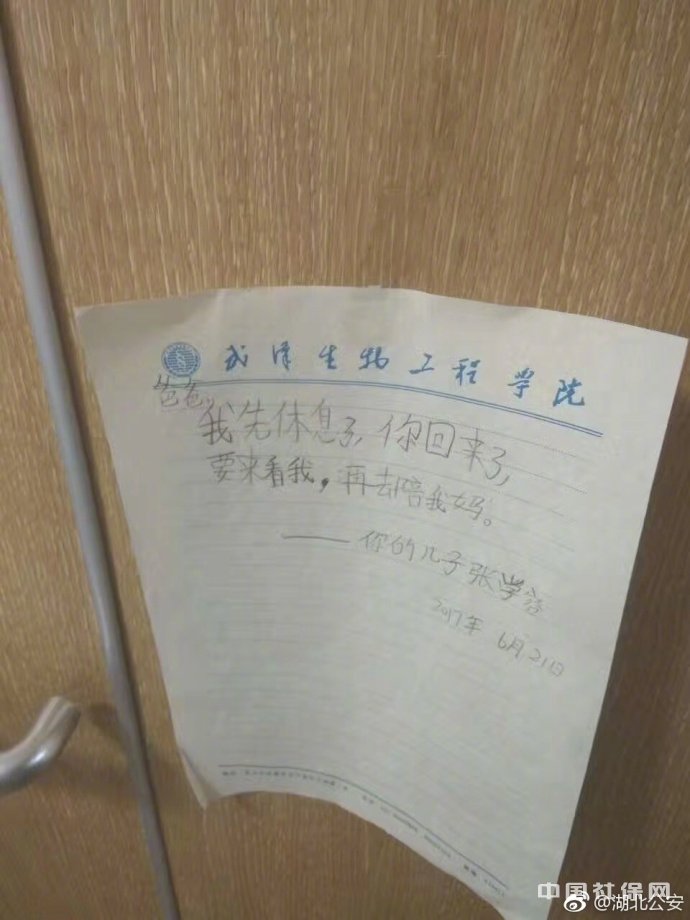 武汉生物工程学院
爸爸，
我先休息了，你回来了，
要来看我，再去陪我妈。
——你的儿子张学
2017年 6月21日
中国社保网
@湖北公安